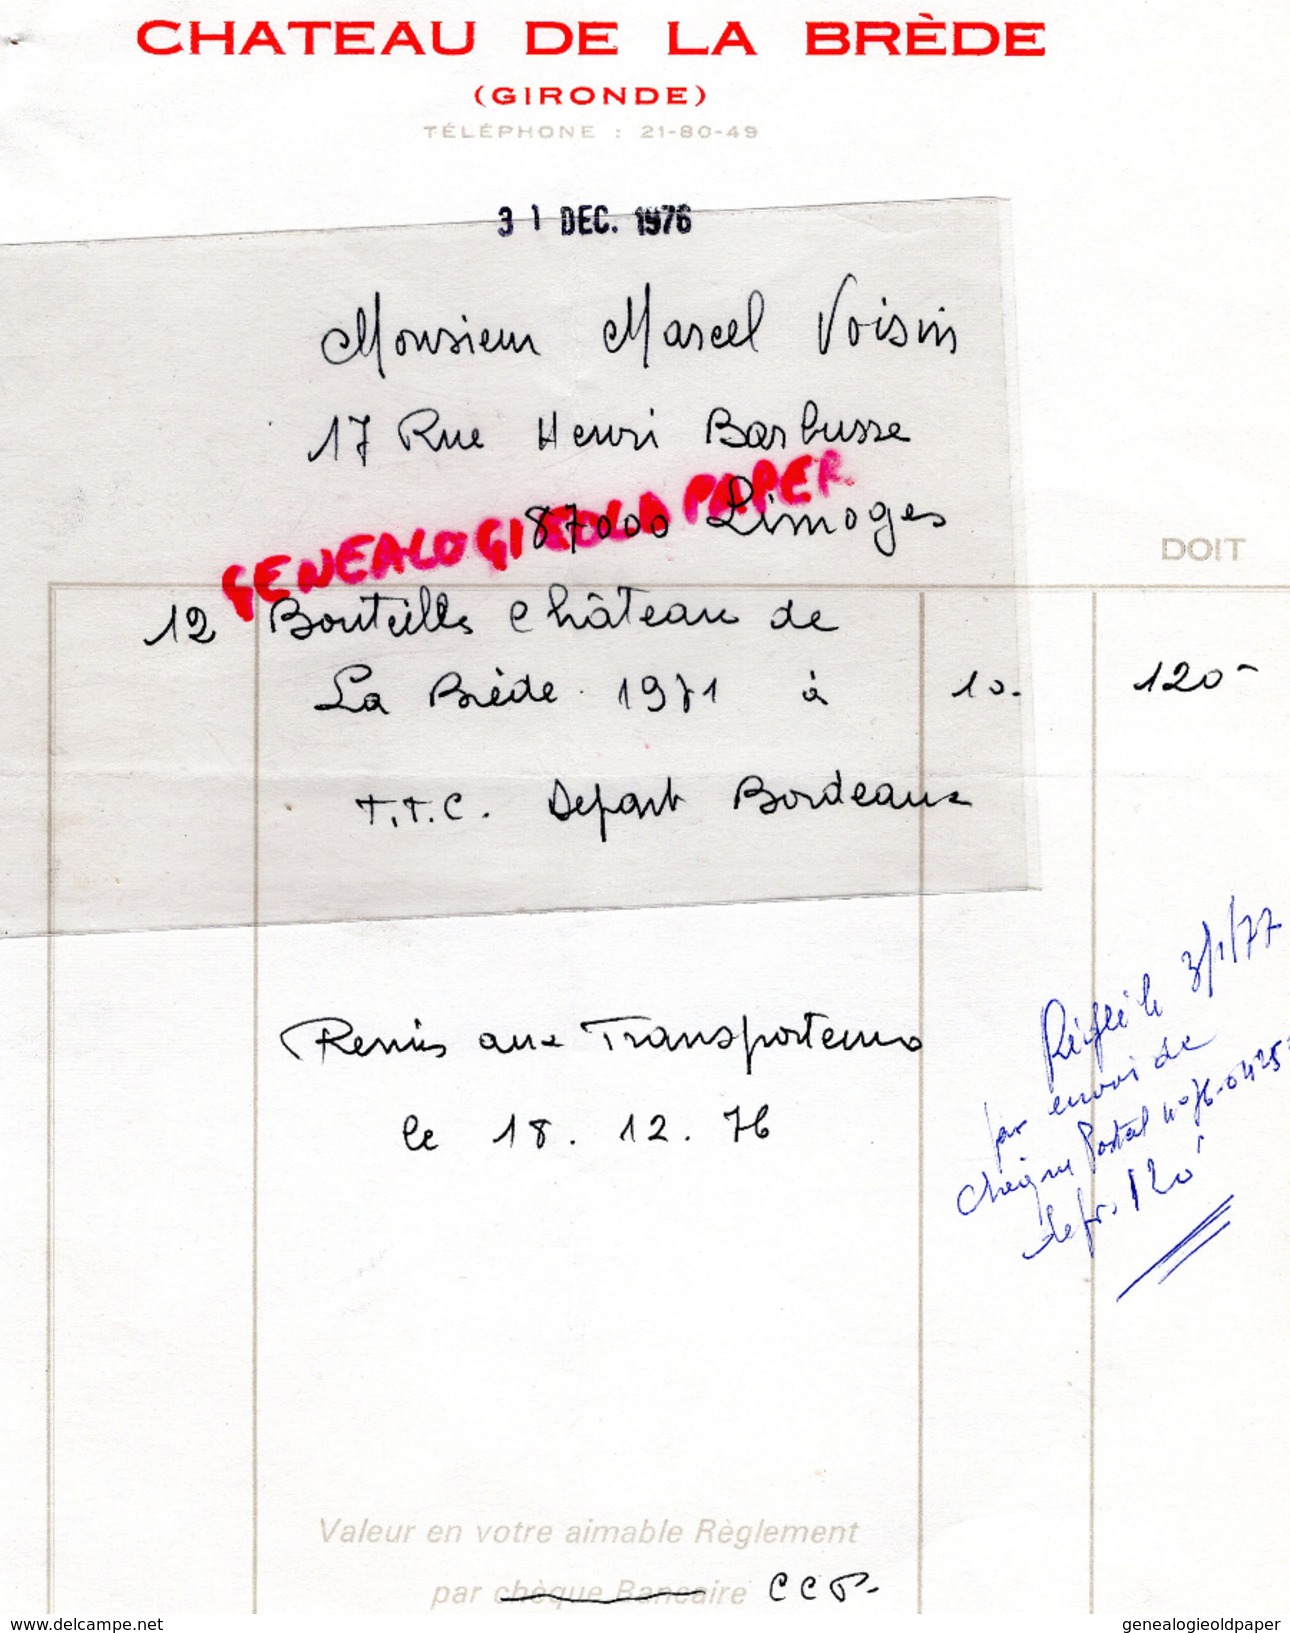 CHATEAU DE LA BRÈDE
(GIRONDE)
TÉLÉPHONE : 21-80-49
31 DEC. 1976
Monsieur Marcel Voisin
17 Rue Henri Barbusse
87000 Limoges
GENEALOGIEOLDPAPER
DOIT
12 Bouteilles Château de
La Brède 1971 à 10.- 120-
T.T.C. Depart Bordeaux
Remis aux Transporteurs
le 18.12.76
Réglé le 3/1/77
par envoi de
chèque Postal n° 76-0425
de frs 120
Valeur en votre aimable Règlement
par chèque Bancaire CCP-
delcampe.net
genealogieoldpaper